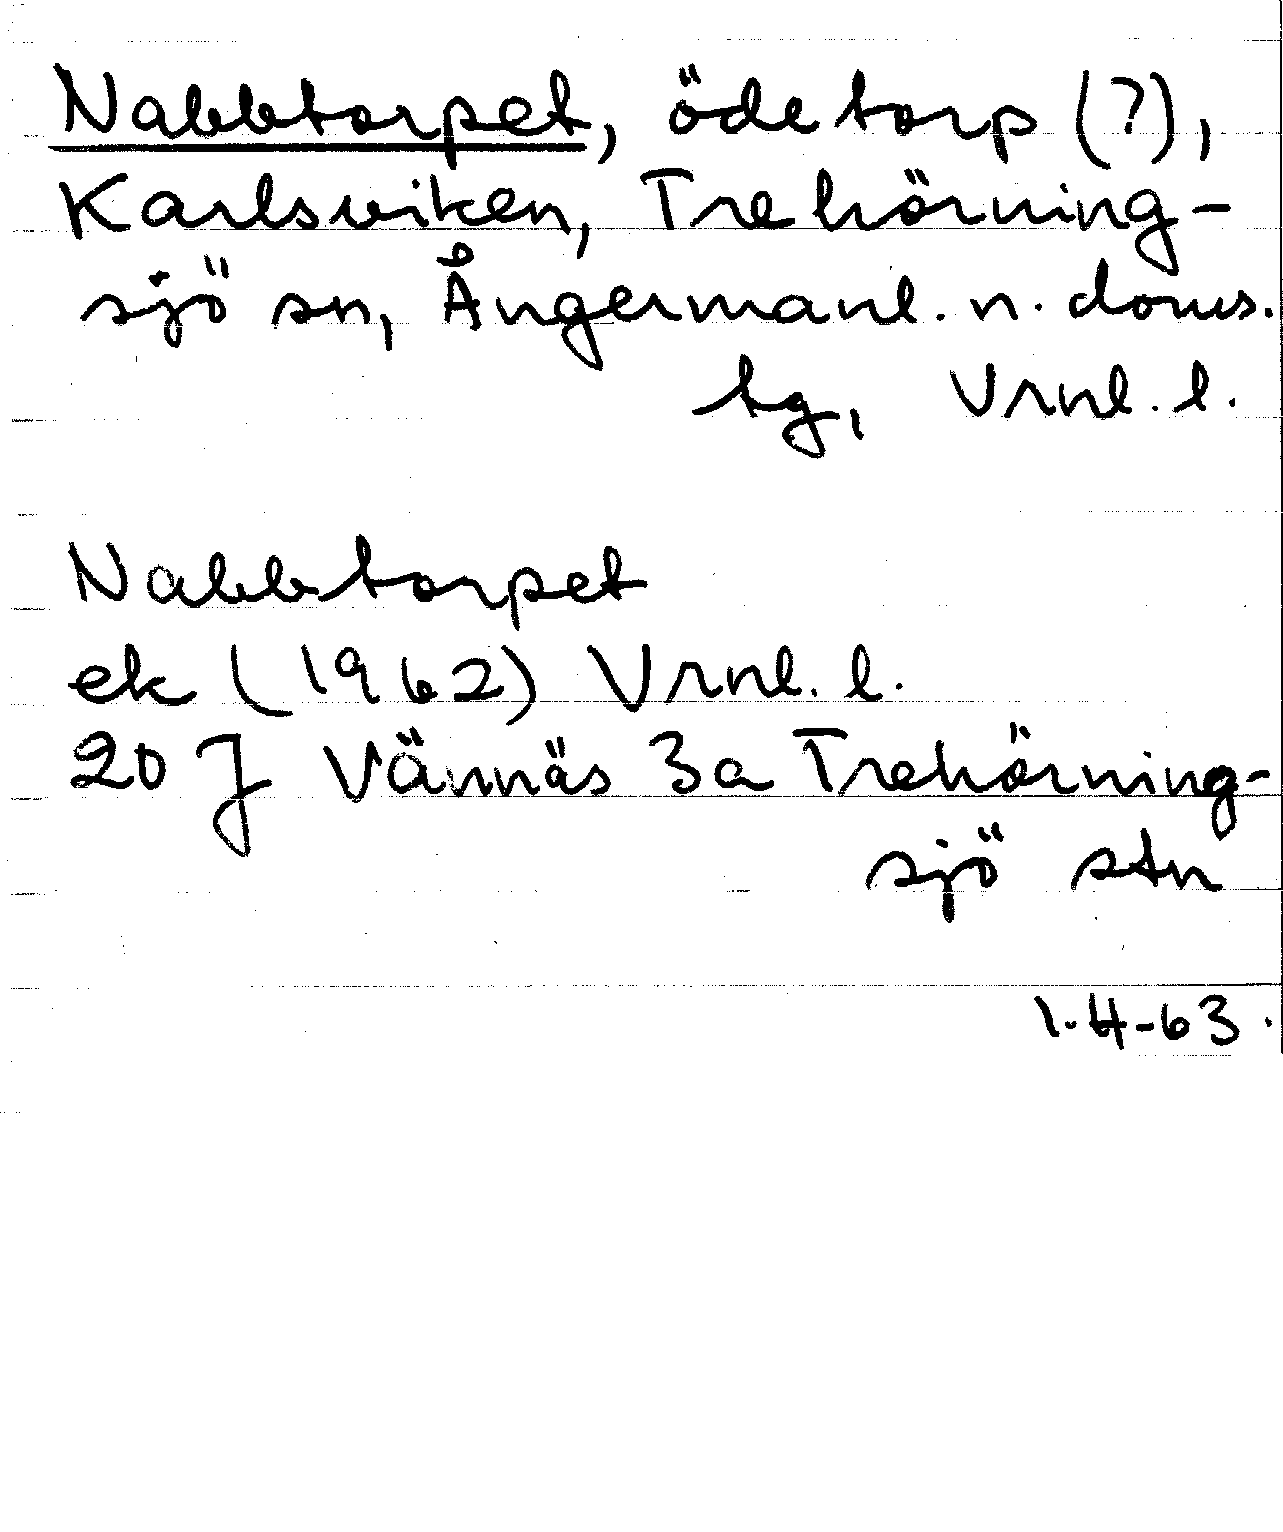 Nabbtorpet, ödetorp (?),
Karlsviken, Trehörning-
sjö sn, Ångermanl. n. doms.
tg, Vrnl. l.
Nabbtorpet
ek (1962) Vrnl. l.
20 J Vännäs 3a Trehörning-
sjö stn
1-4-63.